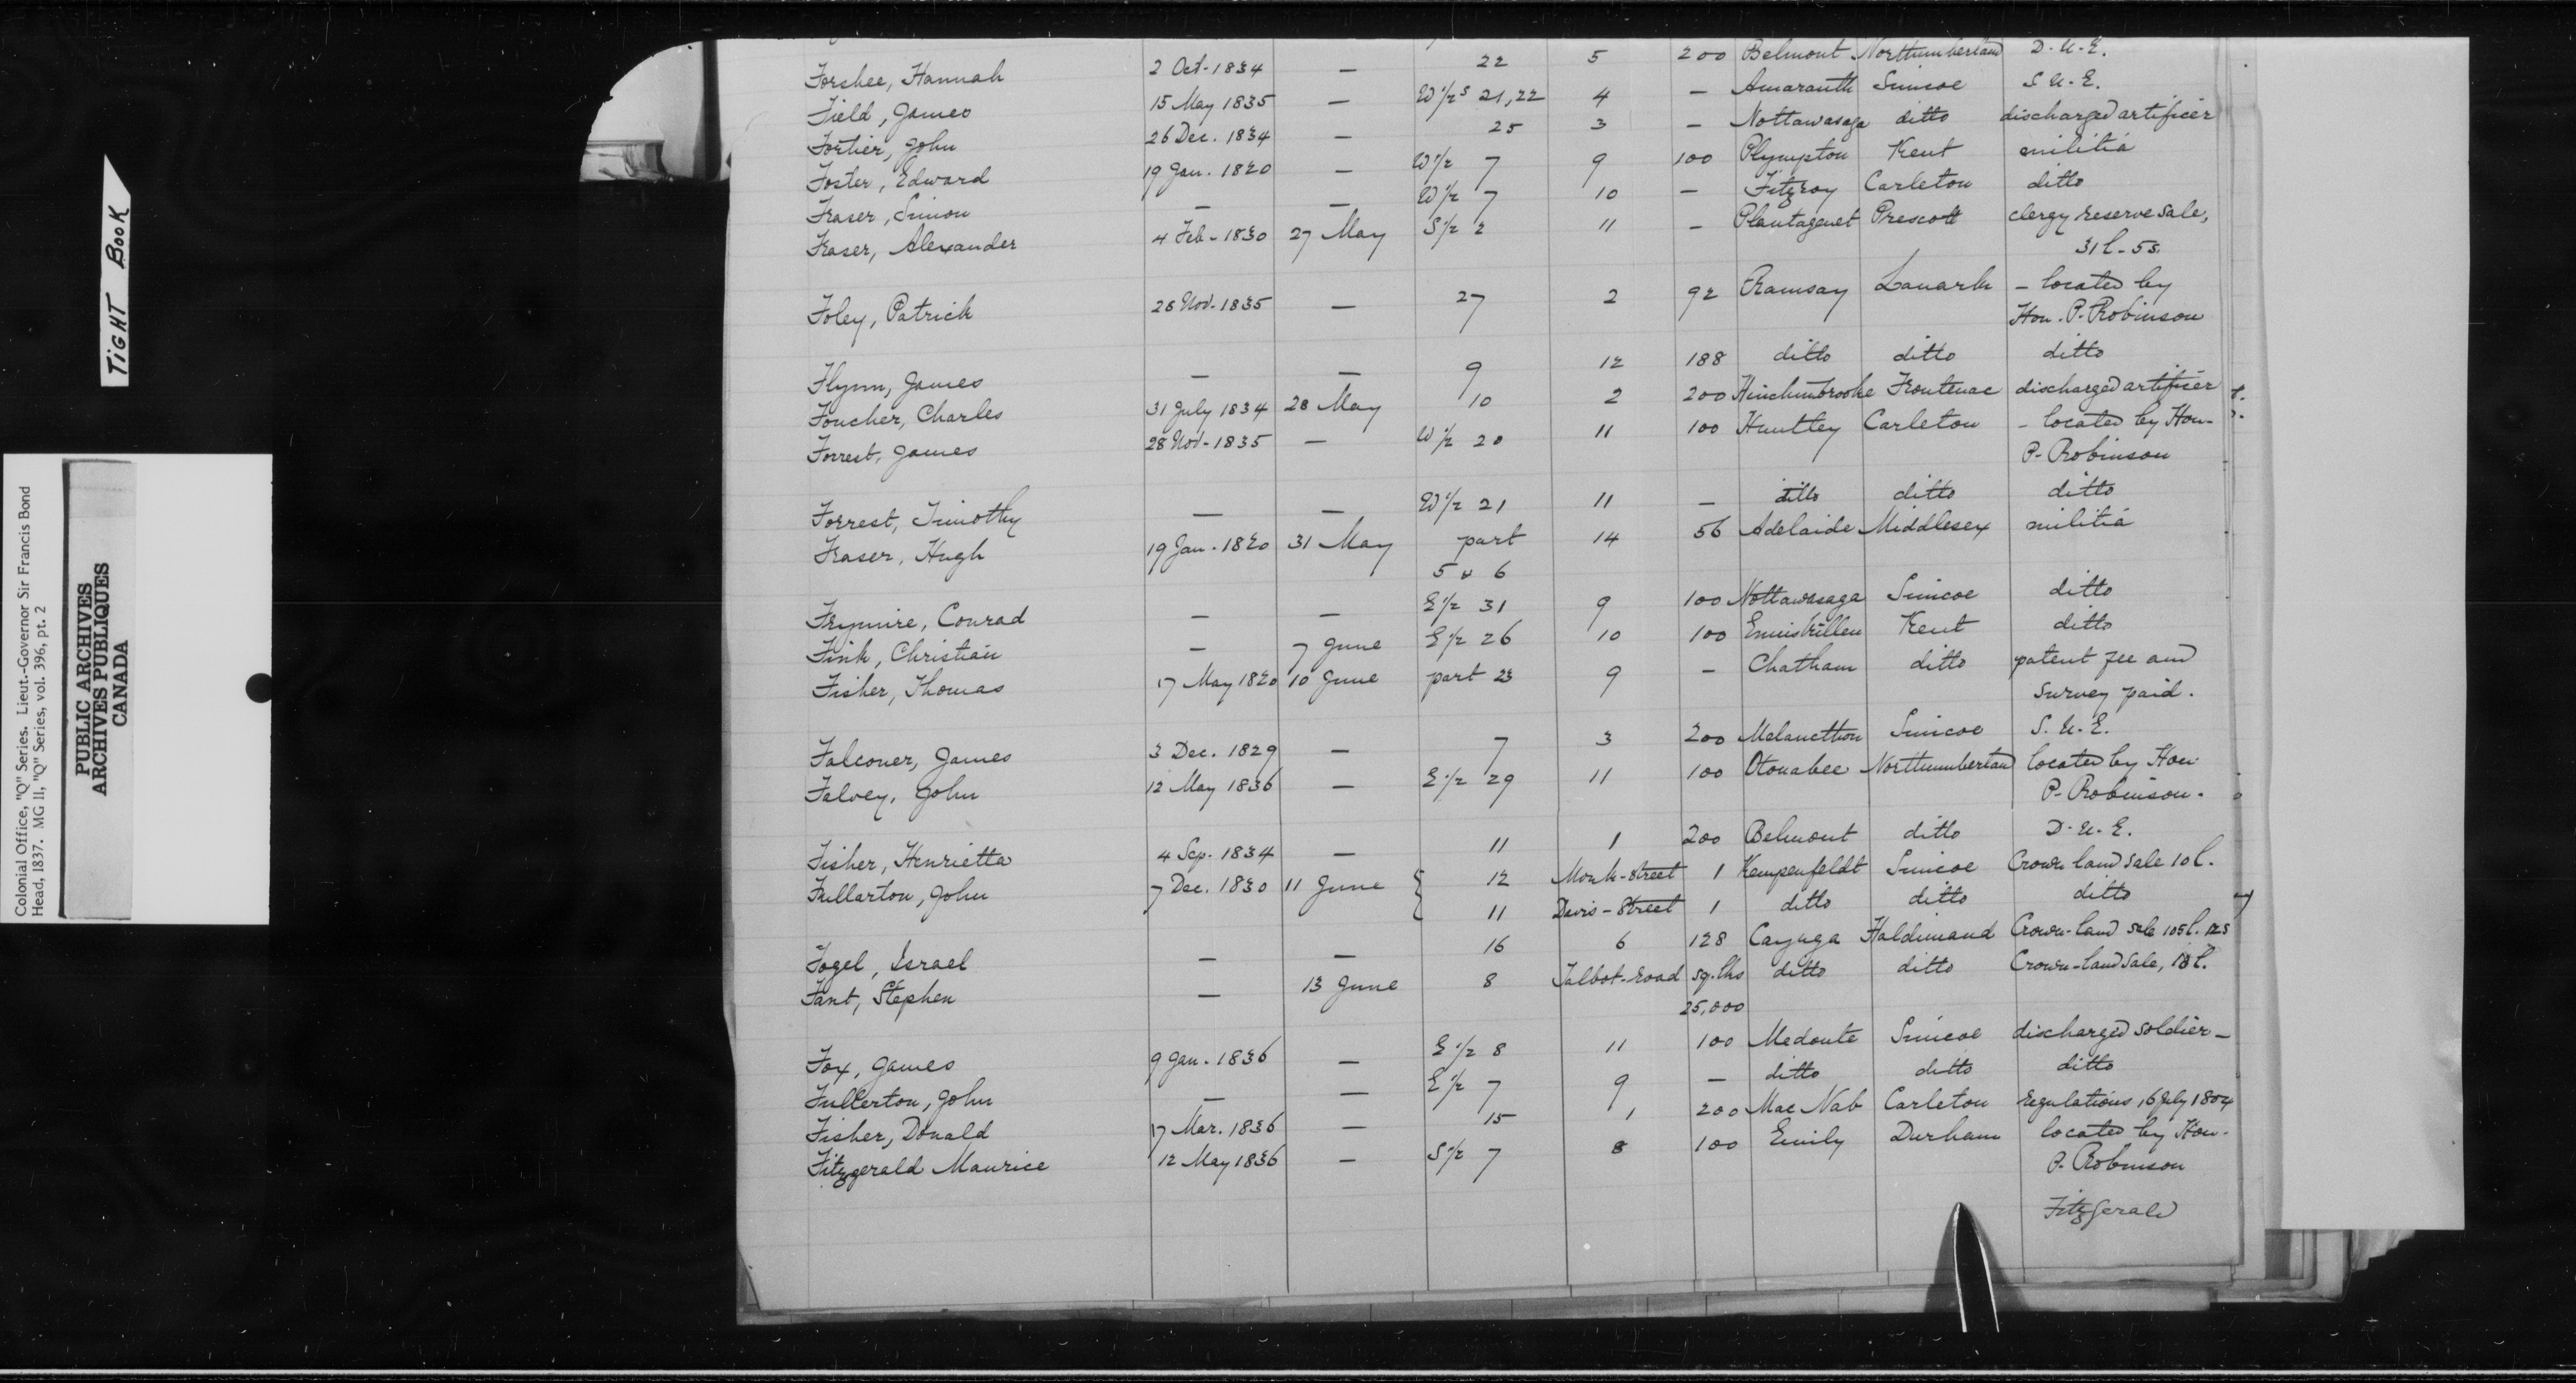 TIGHT BOOK
Colonial Office, "Q" Series. Lieut.-Governor Sir Francis Bond
Head, 1837. MG 11, "Q" Series, vol. 396, pt. 2
PUBLIC ARCHIVES
ARCHIVES PUBLIQUES
CANADA
Forshee, Hannah 2 Oct. 1834 — 22 5 200 Belmont Northumberland D. U. E.
Field, James 15 May 1835 — W 1/2 s 21, 22 4 — Amaranth Simcoe S. U. E.
Fortier, John 26 Dec. 1834 — 25 3 — Nottawasaga ditto discharged artificer
Foster, Edward 19 Jan. 1820 — W 1/2 7 9 100 Plympton Kent militia
Fraser, Simon — — W 1/2 7 10 — Fitzroy Carleton ditto
Fraser, Alexander 4 Feb. 1830 27 May S 1/2 2 11 — Plantagenet Prescott clergy reserve sale,
31 l. 5 s.
Foley, Patrick 28 Nov. 1835 — 27 2 92 Ramsay Lanark — located by
Hon. P. Robinson
Flynn, James — — 9 12 188 ditto ditto ditto
Foucher, Charles 31 July 1834 28 May 10 2 200 Hinchinbrooke Frontenac discharged artificer
Forrest, James 28 Nov. 1835 — W 1/2 20 11 100 Huntley Carleton — located by Hon.
P. Robinson
Forrest, Timothy — — W 1/2 21 11 — ditto ditto ditto
Fraser, Hugh 19 Jan. 1820 31 May part 14 56 Adelaide Middlesex militia
5 & 6
Frymire, Conrad — — E 1/2 31 9 100 Nottawasaga Simcoe ditto
Fink, Christian — 7 June E 1/2 26 10 100 Enniskillen Kent ditto
Fisher, Thomas 17 May 1820 10 June part 23 9 — Chatham ditto patent fee and
survey paid.
Falconer, James 3 Dec. 1829 — 7 3 200 Melancthon Simcoe S. U. E.
Falvey, John 12 May 1836 — E 1/2 29 11 100 Otonabee Northumberland located by Hon.
P. Robinson.
Fisher, Henrietta 4 Sep. 1834 — 11 1 200 Belmont ditto D. U. E.
Fullarton, John 7 Dec. 1830 11 June { 12 Monk-Street 1 Kempenfeldt Simcoe Crown land sale 10 l.
11 Davis-Street 1 ditto ditto ditto
Fogel, Israel — — 16 6 128 Cayuga Haldimand Crown-land sale 105 l. 12 s
Fant, Stephen — 13 June 8 Talbot-road sq. lks ditto ditto Crown-land sale, 13 l.
25,000
Fox, James 9 Jan. 1836 — E 1/2 8 11 100 Medonte Simcoe discharged soldier —
Fullerton, John — — E 1/2 7 9 — ditto ditto ditto
Fisher, Donald 17 Mar. 1836 — 15 1 200 Mac Nab Carleton regulations, 6 July 1804
Fitzgerald Maurice 12 May 1836 — S 1/2 7 8 100 Emily Durham located by Hon.
P. Robinson
Fitzgerald